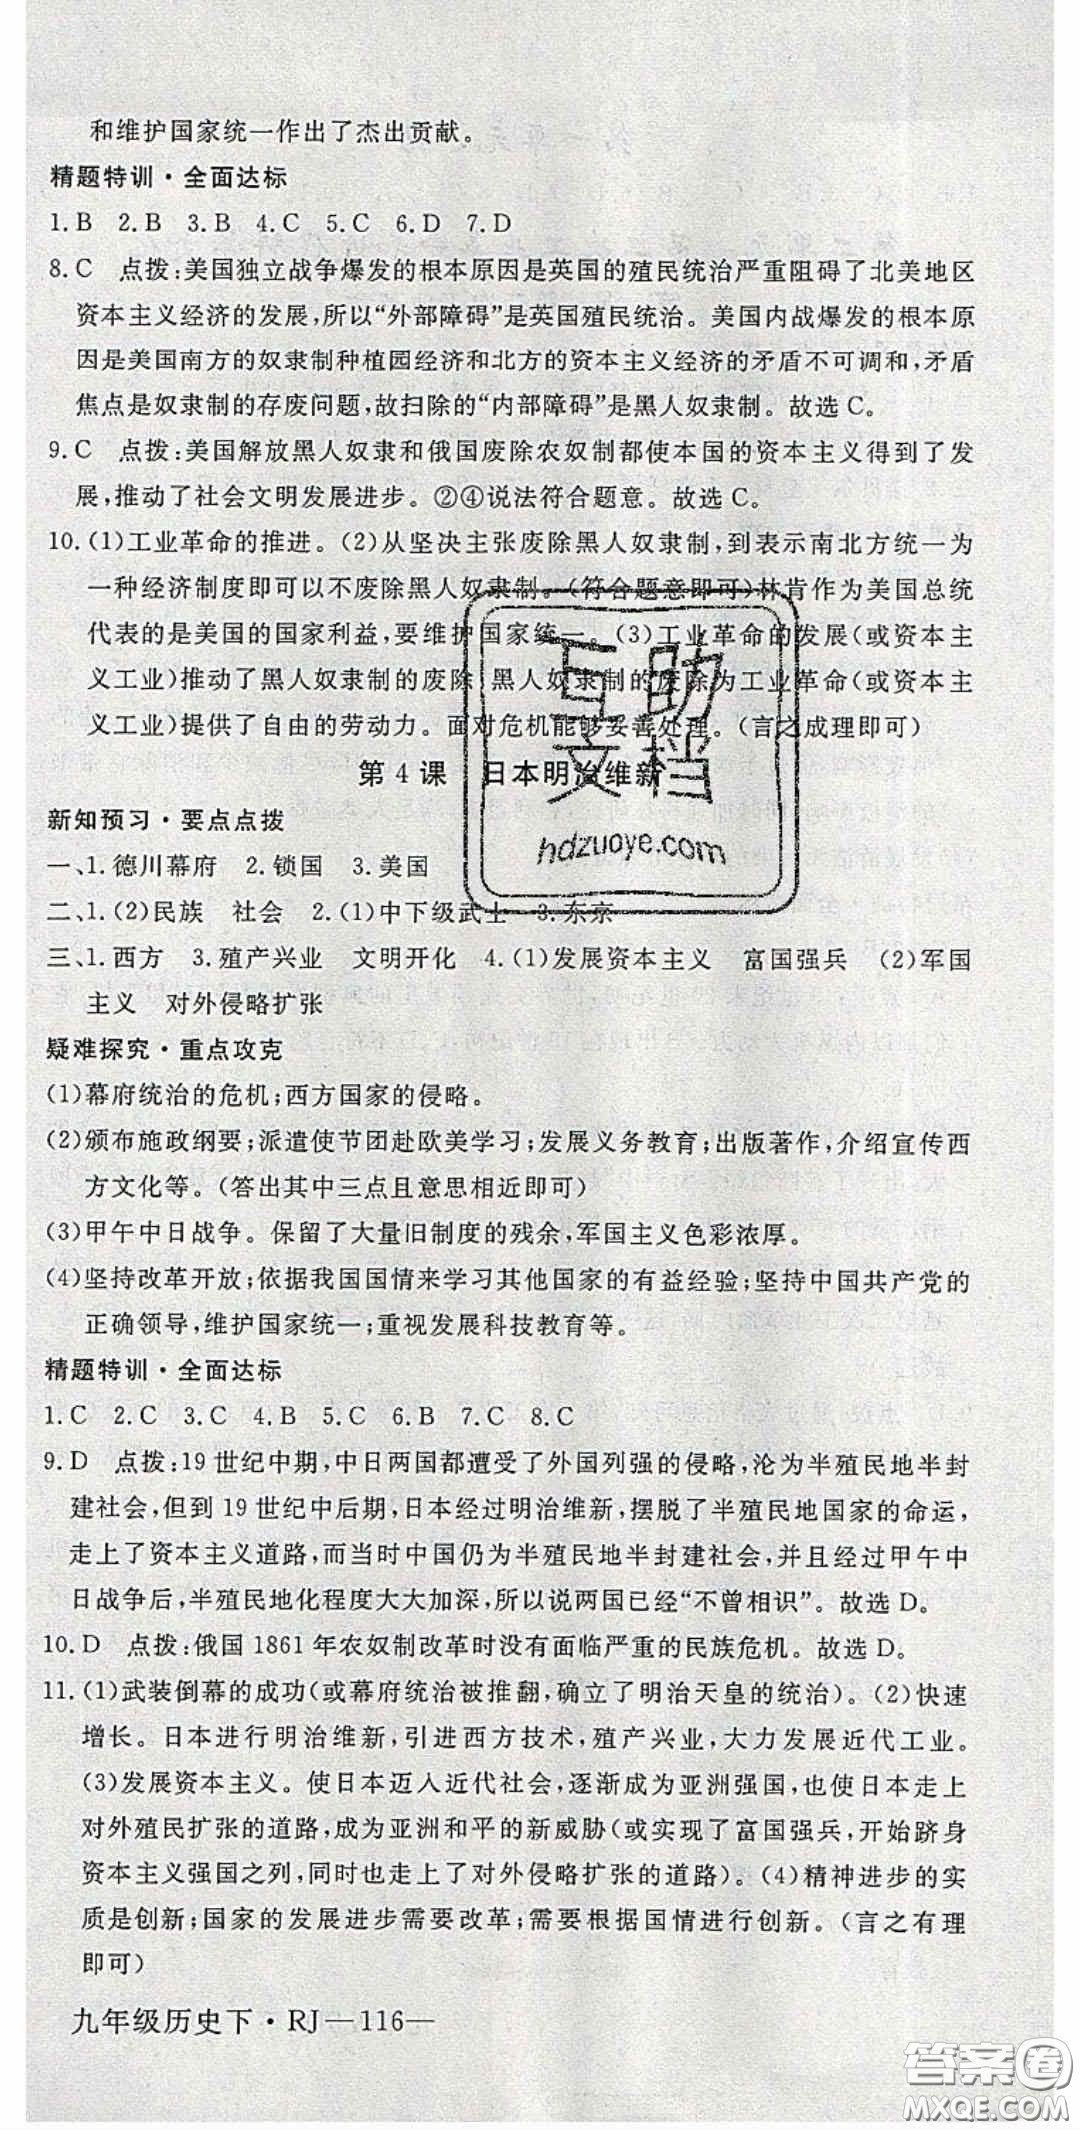 和维护国家统一作出了杰出贡献。
精题特训·全面达标
1.B 2.B 3.B 4.C 5.C 6.D 7.D
8.C 点拨:美国独立战争爆发的根本原因是英国的殖民统治严重阻碍了北美地区
资本主义经济的发展,所以“外部障碍”是英国殖民统治。美国内战爆发的根本原
因是美国南方的奴隶制种植园经济和北方的资本主义经济的矛盾不可调和,矛盾
焦点是奴隶制的存废问题,故扫除的“内部障碍”是黑人奴隶制。故选C。
9.C 点拨:美国解放黑人奴隶和俄国废除农奴制都使本国的资本主义得到了发
展,推动了社会文明发展进步。②④说法符合题意。故选C。
10.(1)工业革命的推进。(2)从坚决主张废除黑人奴隶制,到表示南北方统一为
一种经济制度即可以不废除黑人奴隶制。(符合题意即可)林肯作为美国总统
代表的是美国的国家利益,要维护国家统一。(3)工业革命的发展(或资本主
义工业)推动了黑人奴隶制的废除,黑人奴隶制的废除为工业革命(或资本主
义工业)提供了自由的劳动力。面对危机能够妥善处理。(言之成理即可)
第4课 日本明治维新
新知预习·要点点拨
一、1.德川幕府 2.锁国 3.美国
二、1.(2)民族 社会 2.(1)中下级武士 3.东京
三、1.西方 3.殖产兴业 文明开化 4.(1)发展资本主义 富国强兵 (2)军国
主义 对外侵略扩张
疑难探究·重点攻克
(1)幕府统治的危机;西方国家的侵略。
(2)颁布施政纲要;派遣使节团赴欧美学习;发展义务教育;出版著作,介绍宣传西
方文化等。(答出其中三点且意思相近即可)
(3)甲午中日战争。保留了大量旧制度的残余,军国主义色彩浓厚。
(4)坚持改革开放;依据我国国情来学习其他国家的有益经验;坚持中国共产党的
正确领导,维护国家统一;重视发展科技教育等。
精题特训·全面达标
1.C 2.C 3.C 4.B 5.C 6.B 7.C 8.C
9.D 点拨:19世纪中期,中日两国都遭受了外国列强的侵略,沦为半殖民地半封
建社会,但到19世纪中后期,日本经过明治维新,摆脱了半殖民地国家的命运,
走上了资本主义道路,而当时中国仍为半殖民地半封建社会,并且经过甲午中
日战争后,半殖民地化程度大大加深,所以说两国已经“不曾相识”。故选D。
10.D 点拨:俄国1861年农奴制改革时没有面临严重的民族危机。故选D。
11.(1)武装倒幕的成功(或幕府统治被推翻,确立了明治天皇的统治)。(2)快速
增长。日本进行明治维新,引进西方技术,殖产兴业,大力发展近代工业。
(3)发展资本主义。使日本迈入近代社会,逐渐成为亚洲强国,也使日本走上
对外殖民扩张的道路,成为亚洲和平的新威胁(或实现了富国强兵,开始跻身
资本主义强国之列,同时也走上了对外侵略扩张的道路)。(4)精神进步的实
质是创新;国家的发展进步需要改革;需要根据国情进行创新。(言之有理
即可)
九年级历史下·RJ—116—
互助
文档
hdzuoye.com
答案圈
MXQE.COM